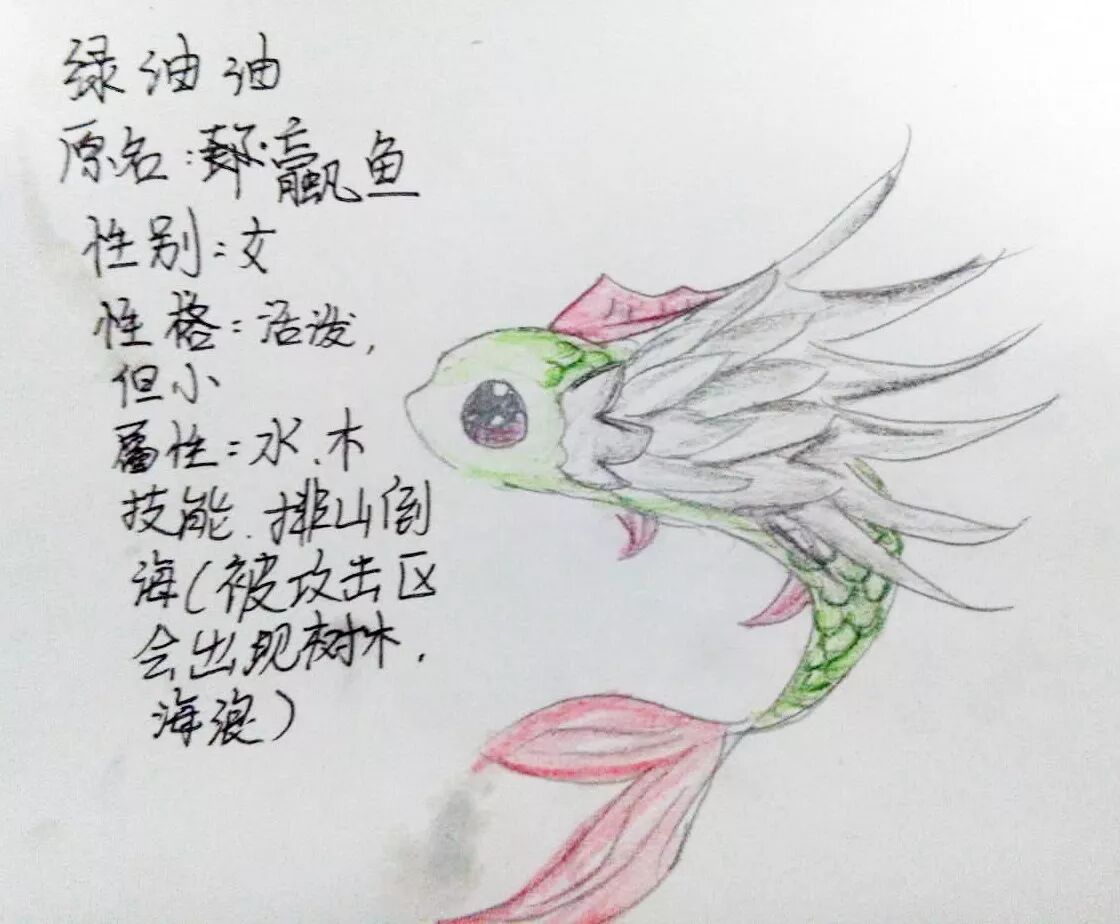 绿油油
原名:蠃鱼
性别:女
性格:活泼,
但小
属性:水、木
技能.排山倒
海(被攻击区
会出现树木,
海浪)